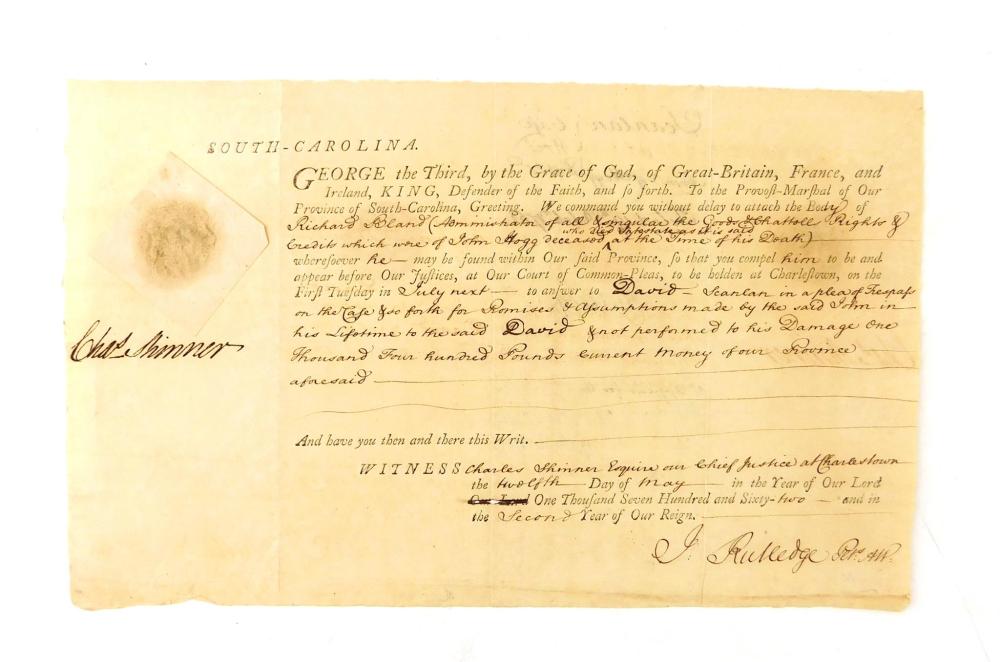 SOUTH-CAROLINA.
GEORGE the Third, by the Grace of God, of Great-Britain, France, and
Ireland, KING, Defender of the Faith, and ſo forth. To the Provoſt-Marſhal of Our
Province of South-Carolina, Greeting. We command you without delay to attach the Body of
Richard Bland (Administrator of all & singular the Goods & Chattells Rights &
who died Intestate as it is said
Credits which were of John Hogg deceased ^ at the Time of his Death)
whereſoever he may be found within Our ſaid Province, ſo that you compel him to be and
appear before Our Juſtices, at Our Court of Common-Pleas, to be holden at Charleſtown, on the
Firſt Tueſday in July next to anſwer to David Scanlan in a plea of Treſpaſs
on the Case & so forth for Promises & Assumptions made by the said John in
his Lifetime to the said David & not performed to his Damage One
Thousand Four hundred Pounds Current Money of our Province
aforesaid
And have you then and there this Writ.
WITNESS Charles Skinner Esquire our Chief Justice at Charlestown
the twelfth Day of May in the Year of Our Lord
Our Lord One Thouſand Seven Hundred and Sixty-two and in
the Second Year of Our Reign.
Chas. Skinner
J: Rutledge